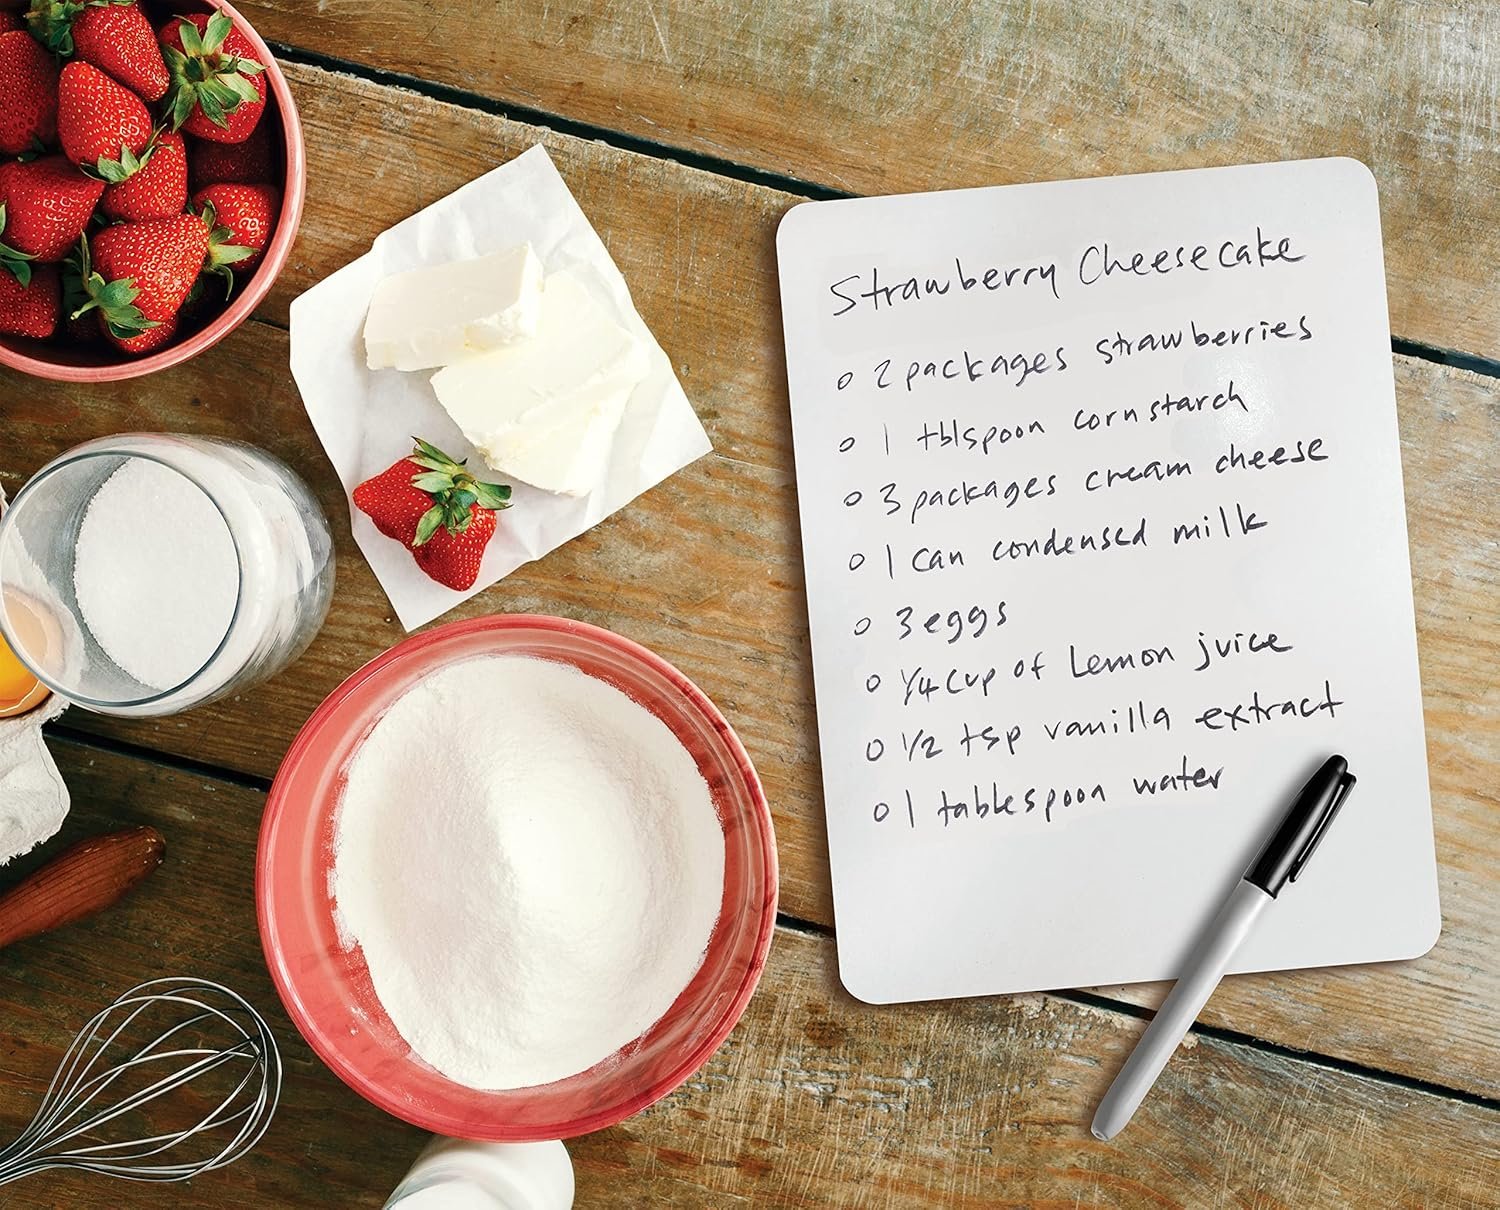 Strawberry Cheesecake
o 2 packages strawberries
o 1 tblspoon cornstarch
o 3 packages cream cheese
o 1 can condensed milk
o 3 eggs
o 1/4 cup of Lemon juice
o 1/2 tsp vanilla extract
o 1 tablespoon water